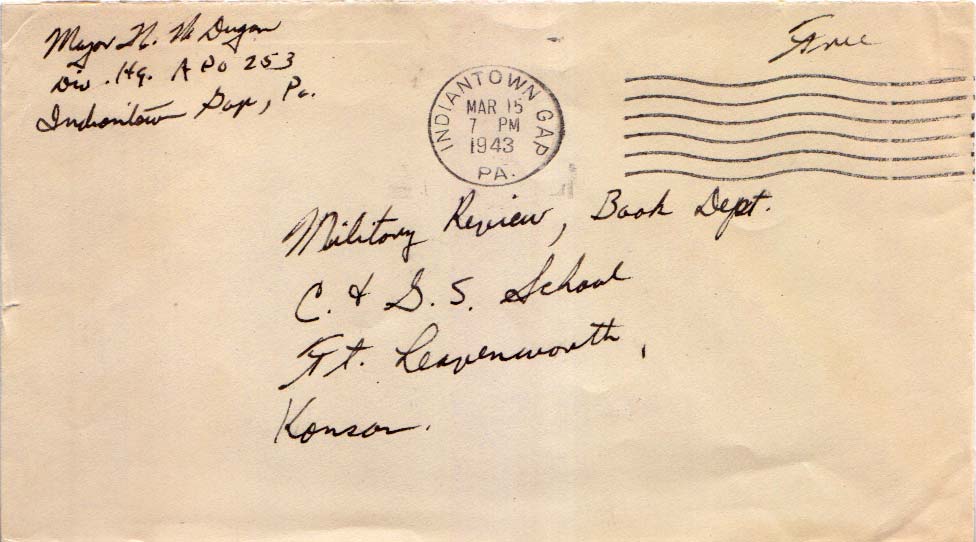 Major N. McDugan
Div. Hq. APO 253
Indiantown Gap, Pa.
Free
INDIANTOWN GAP
MAR 15
7 PM
1943
PA.
Military Review, Book Dept.
C. & G. S. School
Ft. Leavenworth,
Kansas.